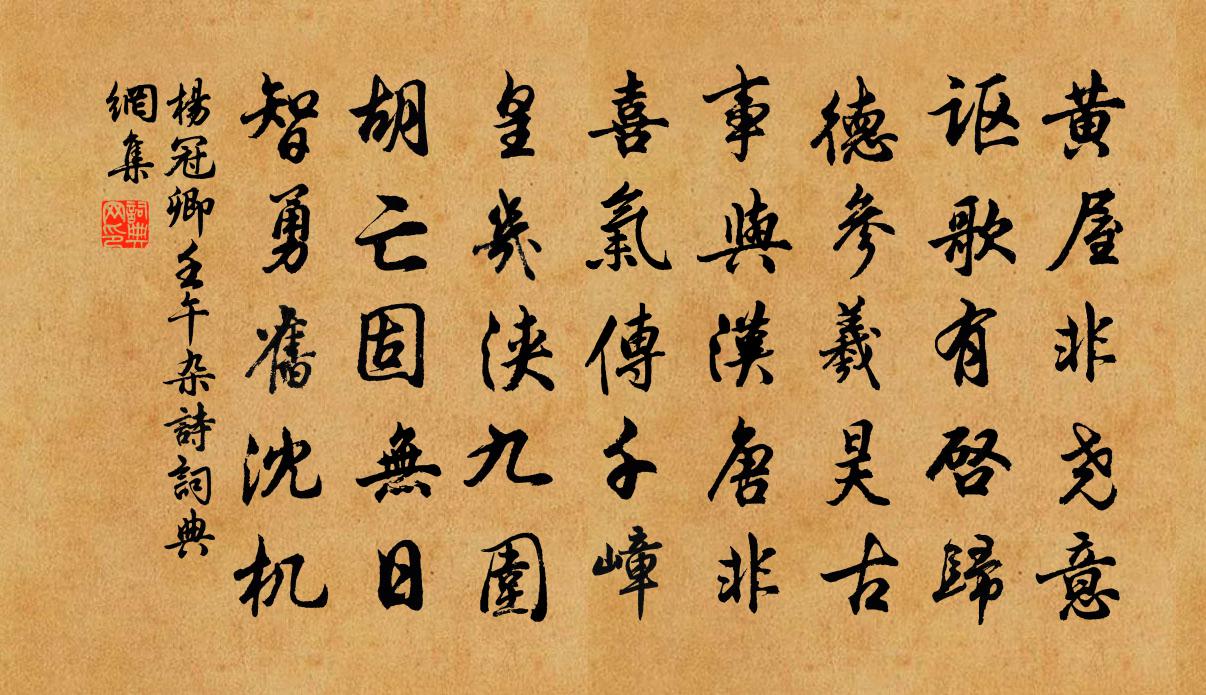 黄屋非尧意
讴歌有啓歸
德參羲昊古
事與漢唐非
喜氣傳千嶂
皇幾浹九圍
胡亡固無日
智勇舊沈机
楊冠卿壬午杂詩詞典
網集
詞典
网印